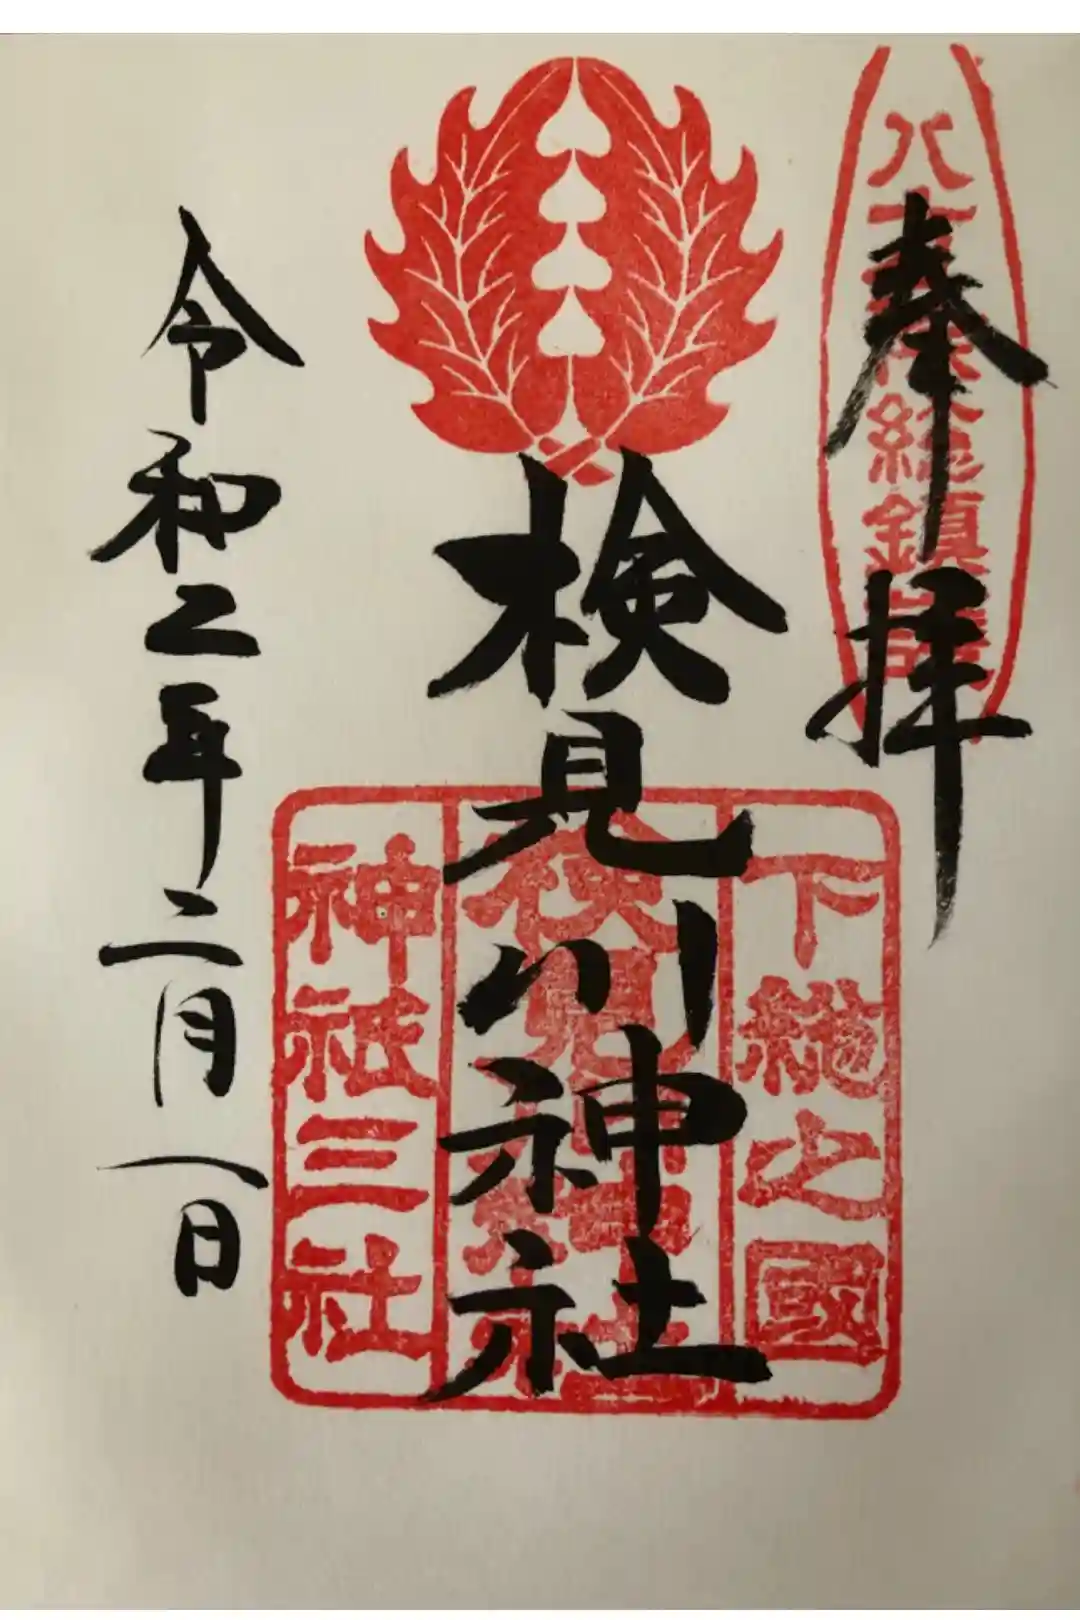 奉拝
八方除総鎮護
検見川神社
下總之國
検見川神社
神祇三社
令和二年二月一日